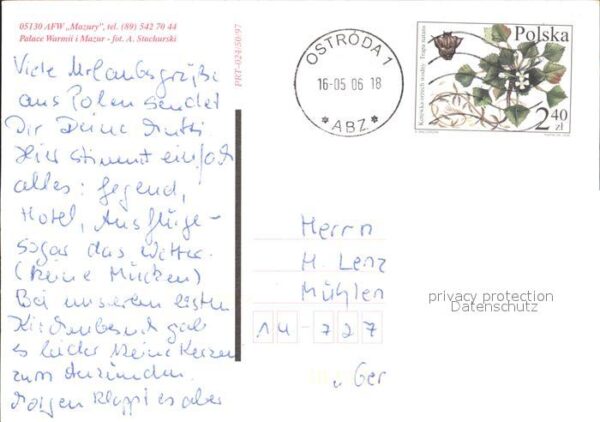 05130 AFW „Mazury”, tel. (89) 542 70 44
Pałace Warmii i Mazur - fot. A. Stachurski
PRT-024/50/97
Viele Urlaubsgrüße
aus Polen sendet
Dir Deine Mutti
Hier stimmt einfach
alles: Gegend,
Hotel, Ausflüge -
sogar das Wetter.
(keine Mücken)
Bei unserem ersten
Kirchenbesuch gab
es leider keine Kerzen
zum Anzünden.
Morgen klappt es aber
OSTRÓDA 1
16-05 06 18
* ABZ. *
Polska
Kotewka orzech wodny Trapa natans
2,40
zł
Herrn
H. Lenz
Mühlen
privacy protection
Datenschutz
14-727
Ger